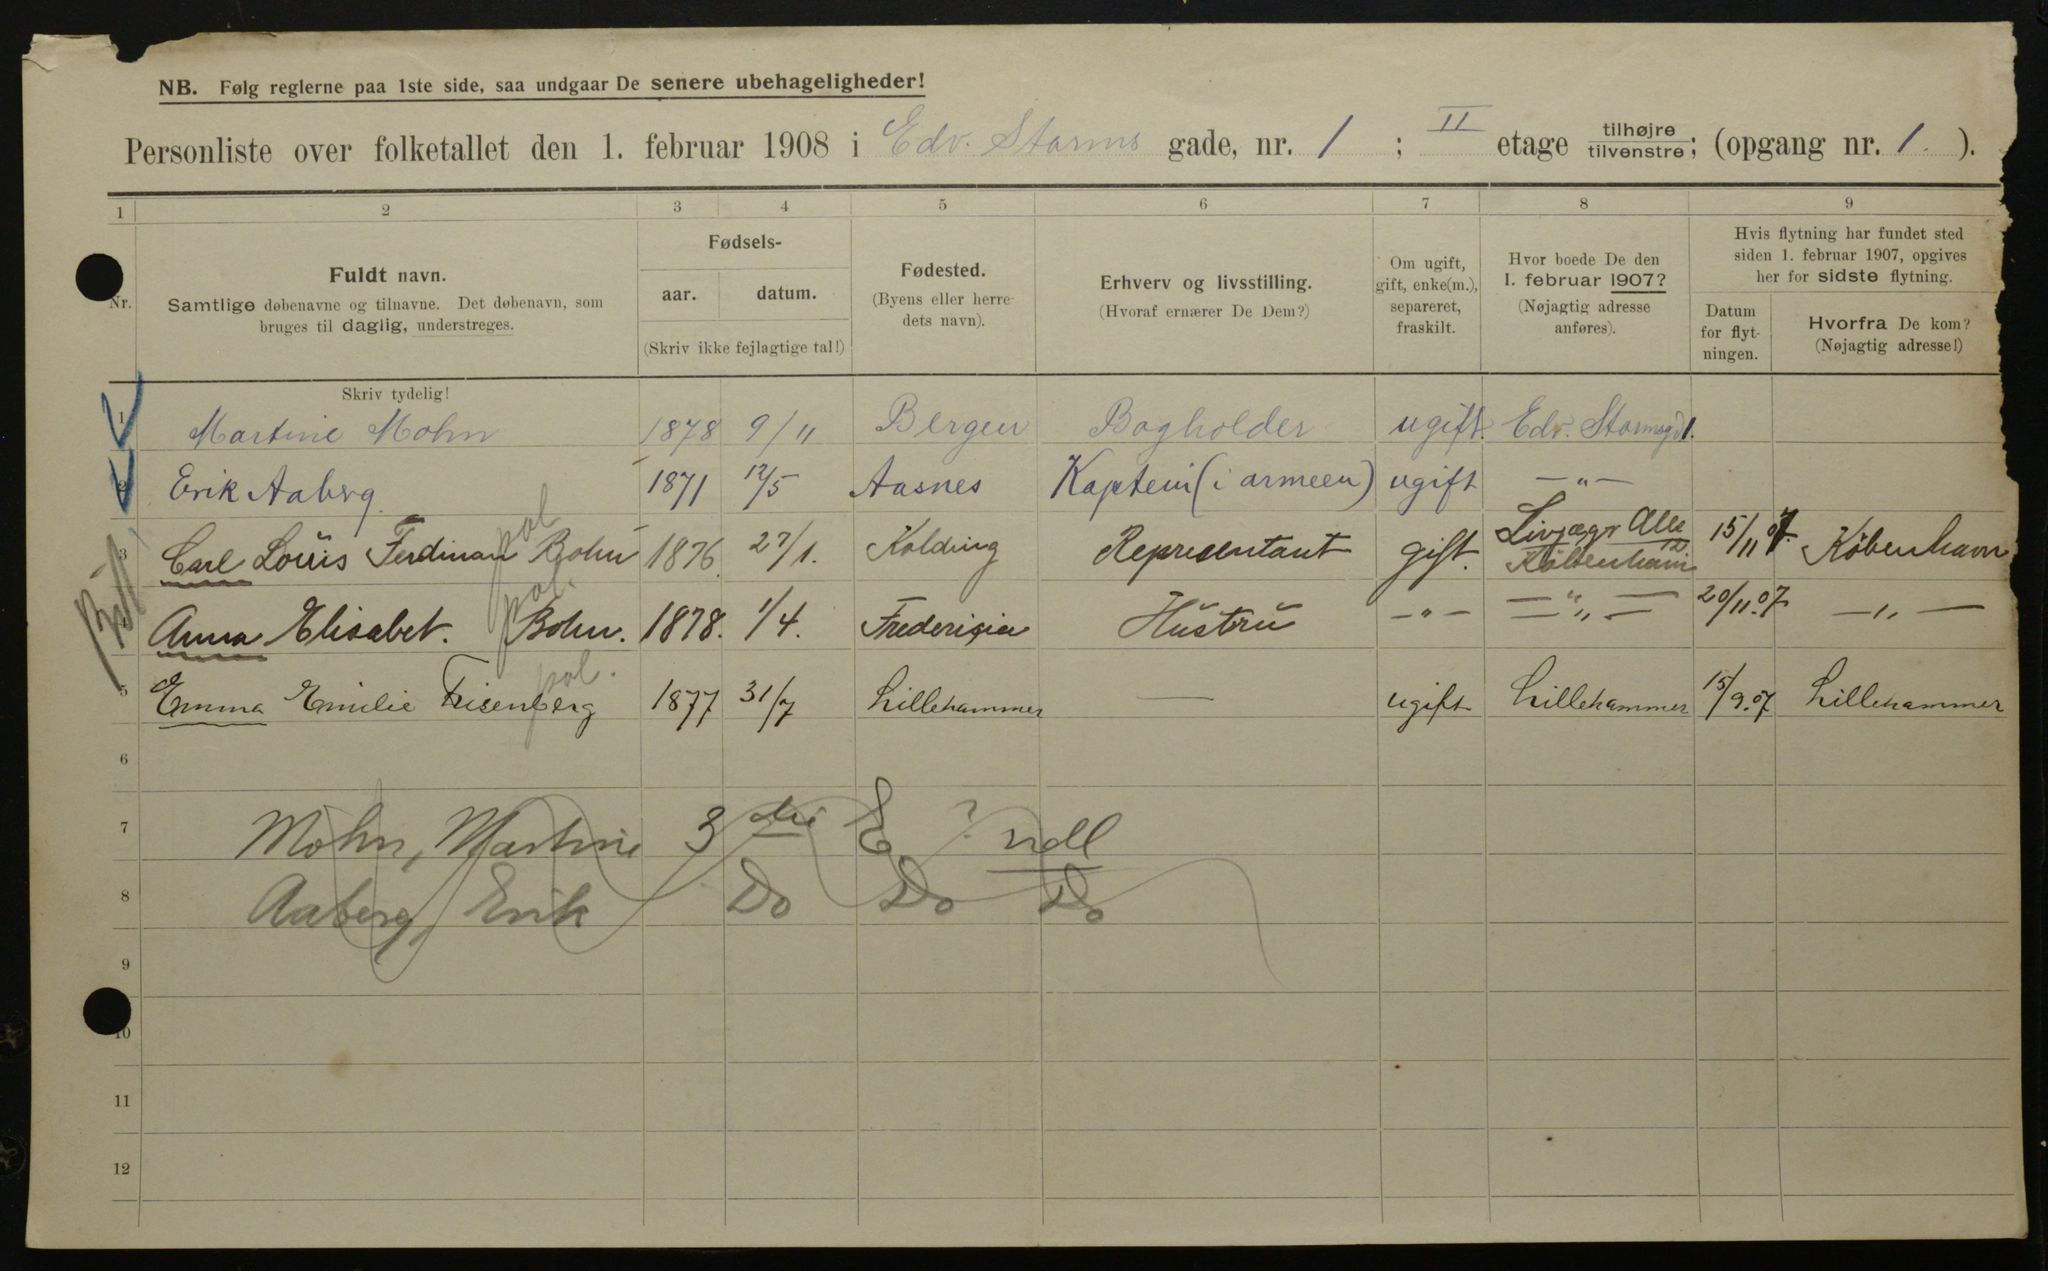 NB. Følg reglerne paa 1ste side, saa undgaar De senere ubehageligheder!
Personliste over folketallet den 1. februar 1908 i Edv. Storms gade, nr. 1 ; II etage tilhøjre tilvenstre; (opgang nr. 1. ).
1 2 3 4 5 6 7 8 9
Nr.
Fuldt navn.
Samtlige døbenavne og tilnavne. Det døbenavn, som
bruges til daglig, understreges.
Skriv tydelig!
Fødsels-
aar. datum.
(Skriv ikke fejlagtige tal!)
Fødested.
(Byens eller herre-
dets navn).
Erhverv og livsstilling.
(Hvoraf ernærer De Dem?)
Om ugift,
gift, enke(m.),
separeret,
fraskilt.
Hvor boede De den
1. februar 1907?
(Nøjagtig adresse
anføres).
Hvis flytning har fundet sted
siden 1. februar 1907, opgives
her for sidste flytning.
Datum
for flyt-
ningen.
Hvorfra De kom?
(Nøjagtig adresse!)
1 Martine Mohn 1878 9/11 Bergen Bogholder ugift. Edv. Stormsgd 1.
2 Erik Aaberg 1871 12/5 Aasnes Kaptein (i armeen) ugift — " —
pol
3 Carl Louis Ferdinan Bohn 1876 27/1. Kolding Representant gift. Livjæger Alle 12 København 15/11 07. København
pol.
4 Anna Elisabet. Bohn. 1878. 1/4. Fredericia Hustru — " — — " — 20/11.07 — " —
pol.
5 Emma Emilie Frisenberg 1877 31/7 Lillehammer — ugift Lillehammer 15/9.07 Lillehammer
6
7 Mohn, Martine 3die E ? ndl
8 Aaberg, Erik Do Do Do
9
10
11
12